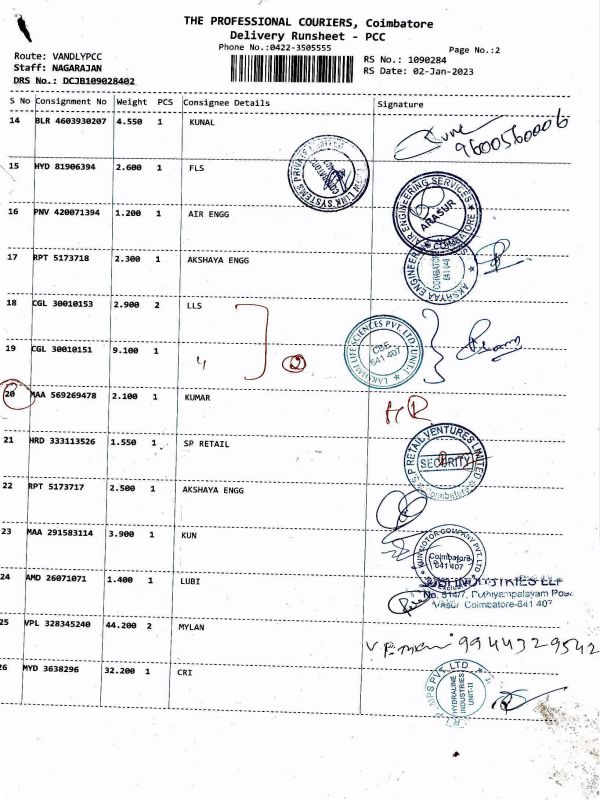 THE PROFESSIONAL COURIERS, Coimbatore
Delivery Runsheet - PCC
Phone No.:0422-3505555
Page No.:2
Route: VANDLYPCC
Staff: NAGARAJAN
DRS No.: DCJB109028402
RS No.: 1090284
RS Date: 02-Jan-2023
S No Consignment No Weight PCS Consignee Details Signature
14 BLR 4603930207 4.550 1 KUNAL
9600560006
15 HYD 81906394 2.600 1 FLS
16 PNV 420071394 1.200 1 AIR ENGG
AIR ENGINEERING SERVICES
ARASUR
COIMBATORE
17 RPT 5173718 2.300 1 AKSHAYA ENGG
18 CGL 30010153 2.900 2 LLS
19 CGL 30010151 9.100 1 "
2
LAKSHMI LIFE SCIENCES PVT. LTD. UNIT-I
CBE
641 407
20 MAA 569269478 2.100 1 KUMAR
21 HRD 333113526 1.550 1 SP RETAIL
S.P RETAIL VENTURES LIMITED
SECURITY
Coimbatore
22 RPT 5173717 2.500 1 AKSHAYA ENGG
23 MAA 291583114 3.900 1 KUN
KUN MOTOR COMPANY PVT. LTD
Coimbatore
641 407
24 AMD 26071071 1.400 1 LUBI
Coimbatore-641 407
25 VPL 328345240 44.200 2 MYLAN
9944329542
26 MYD 3638296 32.200 1 CRI
HYDRALINE
INDUSTRIES
UNIT-II